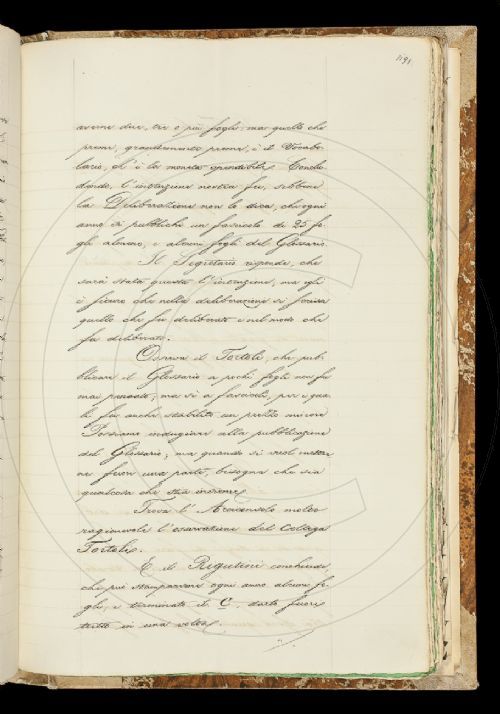 491
averne due, tre o più fogli: ma quello che
preme, grandemente preme, è il Vocabo-
lario, ch'è la moneta spendibile. Conchiu-
dendo, l'intenzione nostra fu, sebbene
la Deliberazione non lo dica, che ogni
anno si pubblichi un fascicolo di 25 fo-
gli almeno, e alcuni fogli del Glossario.
Il Segretario risponde, che
sarà stata questa l'intenzione, ma egli
è sicuro che nella deliberazione si
quello che fu deliberato e nel modo che
fu deliberato.
Osserva il Tortoli, che pub-
blicare il Glossario a pochi fogli non fu
mai pensato, ma sì a fascicoli, per i qua-
li fu anche stabilito un prezzo minore.
Possiamo indugiare alla pubblicazione
del Glossario; ma quando si vuol metter-
ne fuori una parte, bisogna che sia
qualcosa che stia insieme.
Trova l'Arciconsolo molto
ragionevole l'osservazione del Collega
Tortoli.
E il Rigutini conchiude,
che può stamparsene ogni anno alcuni fo-
gli, e terminato il C, darlo fuori
tutto in una volta.